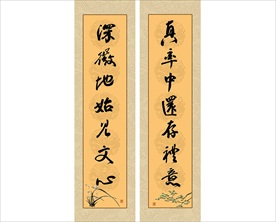 真率中還存禮意
深微地始見文心